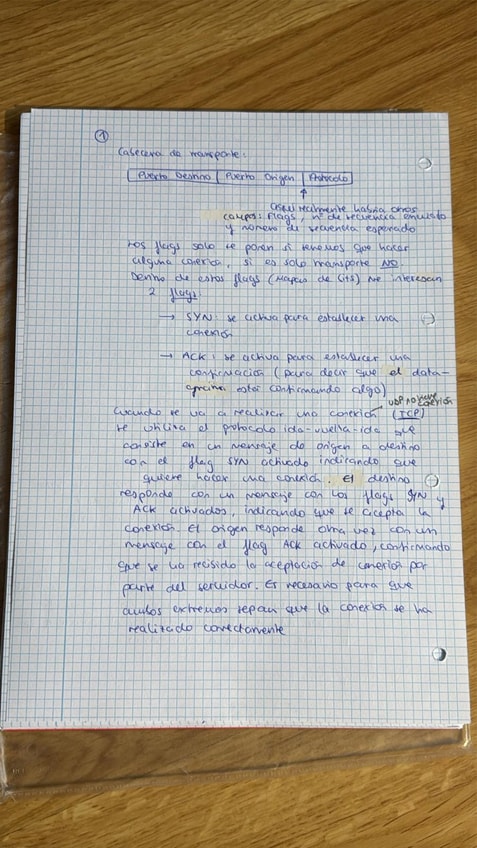 ①
Cabecera de transporte:
Puerto Destino | Puerto Origen | Protocolo
Aquí realmente habría otros
campos: flags, nº de secuencia enviado
y número de secuencia esperado
Los flags solo se ponen si tenemos que hacer
alguna conexión, si es solo transporte NO.
Dentro de estos flags (mapas de bits) nos interesan
2 flags:
→ SYN: se activa para establecer una
conexión
→ ACK: se activa para establecer una
confirmación (para decir que el data-
grama está confirmando algo)
UDP NO HAY
CONEXIÓN
Cuando se va a realizar una conexión (TCP)
se utiliza el protocolo ida-vuelta-ida que
consiste en un mensaje de origen a destino
con el flag SYN activado indicando que
quiere hacer una conexión. El destino
responde con un mensaje con los flags SYN y
ACK activados, indicando que se acepta la
conexión. El origen responde otra vez con un
mensaje con el flag ACK activado, confirmando
que se ha recibido la aceptación de conexión por
parte del servidor. Es necesario para que
ambos extremos sepan que la conexión se ha
realizado correctamente